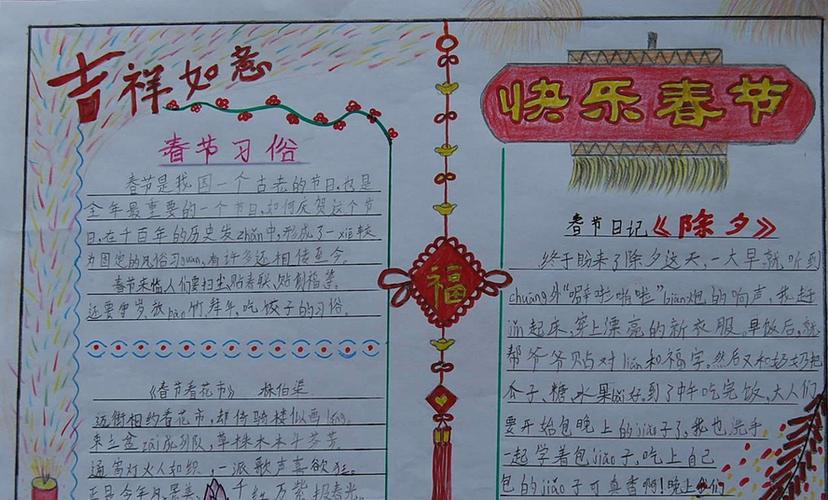 吉祥如意
春节习俗
春节是我国一个古老的节日,也是
全年最重要的一个节日,如何庆贺这个节
日,在千百年的历史发zhǎn中,形成了一xiē较
为固定的风俗习guàn,有许多还相传至今。
春节来临人们要扫尘,贴春联、贴剪福等。
还要守岁,放pào竹,拜年、吃饺子的习俗。
《春节看花市》 林伯渠
迈街相约看花市,却倚骑楼似画
灯火人如织,一派歌声喜欲狂。
正是今年风景美,千红万紫报春光。
福
快乐春节
春节日记《除夕》
终于盼来了除夕这天,一大早就听到
chuāng外“噼啦啪啦”biān炮的响声,我赶
jǐn起床,穿上漂亮的新衣服。早饭后,就
帮爷爷贴对lián和福字。然后又和奶奶把
瓜子、糖、水果bǎi好。到了中午吃完饭,大人们
要开始包晚上的jiǎo子了,我也洗手
一起学着包jiǎo子,吃上自己
包的jiǎo子可真香啊!晚上